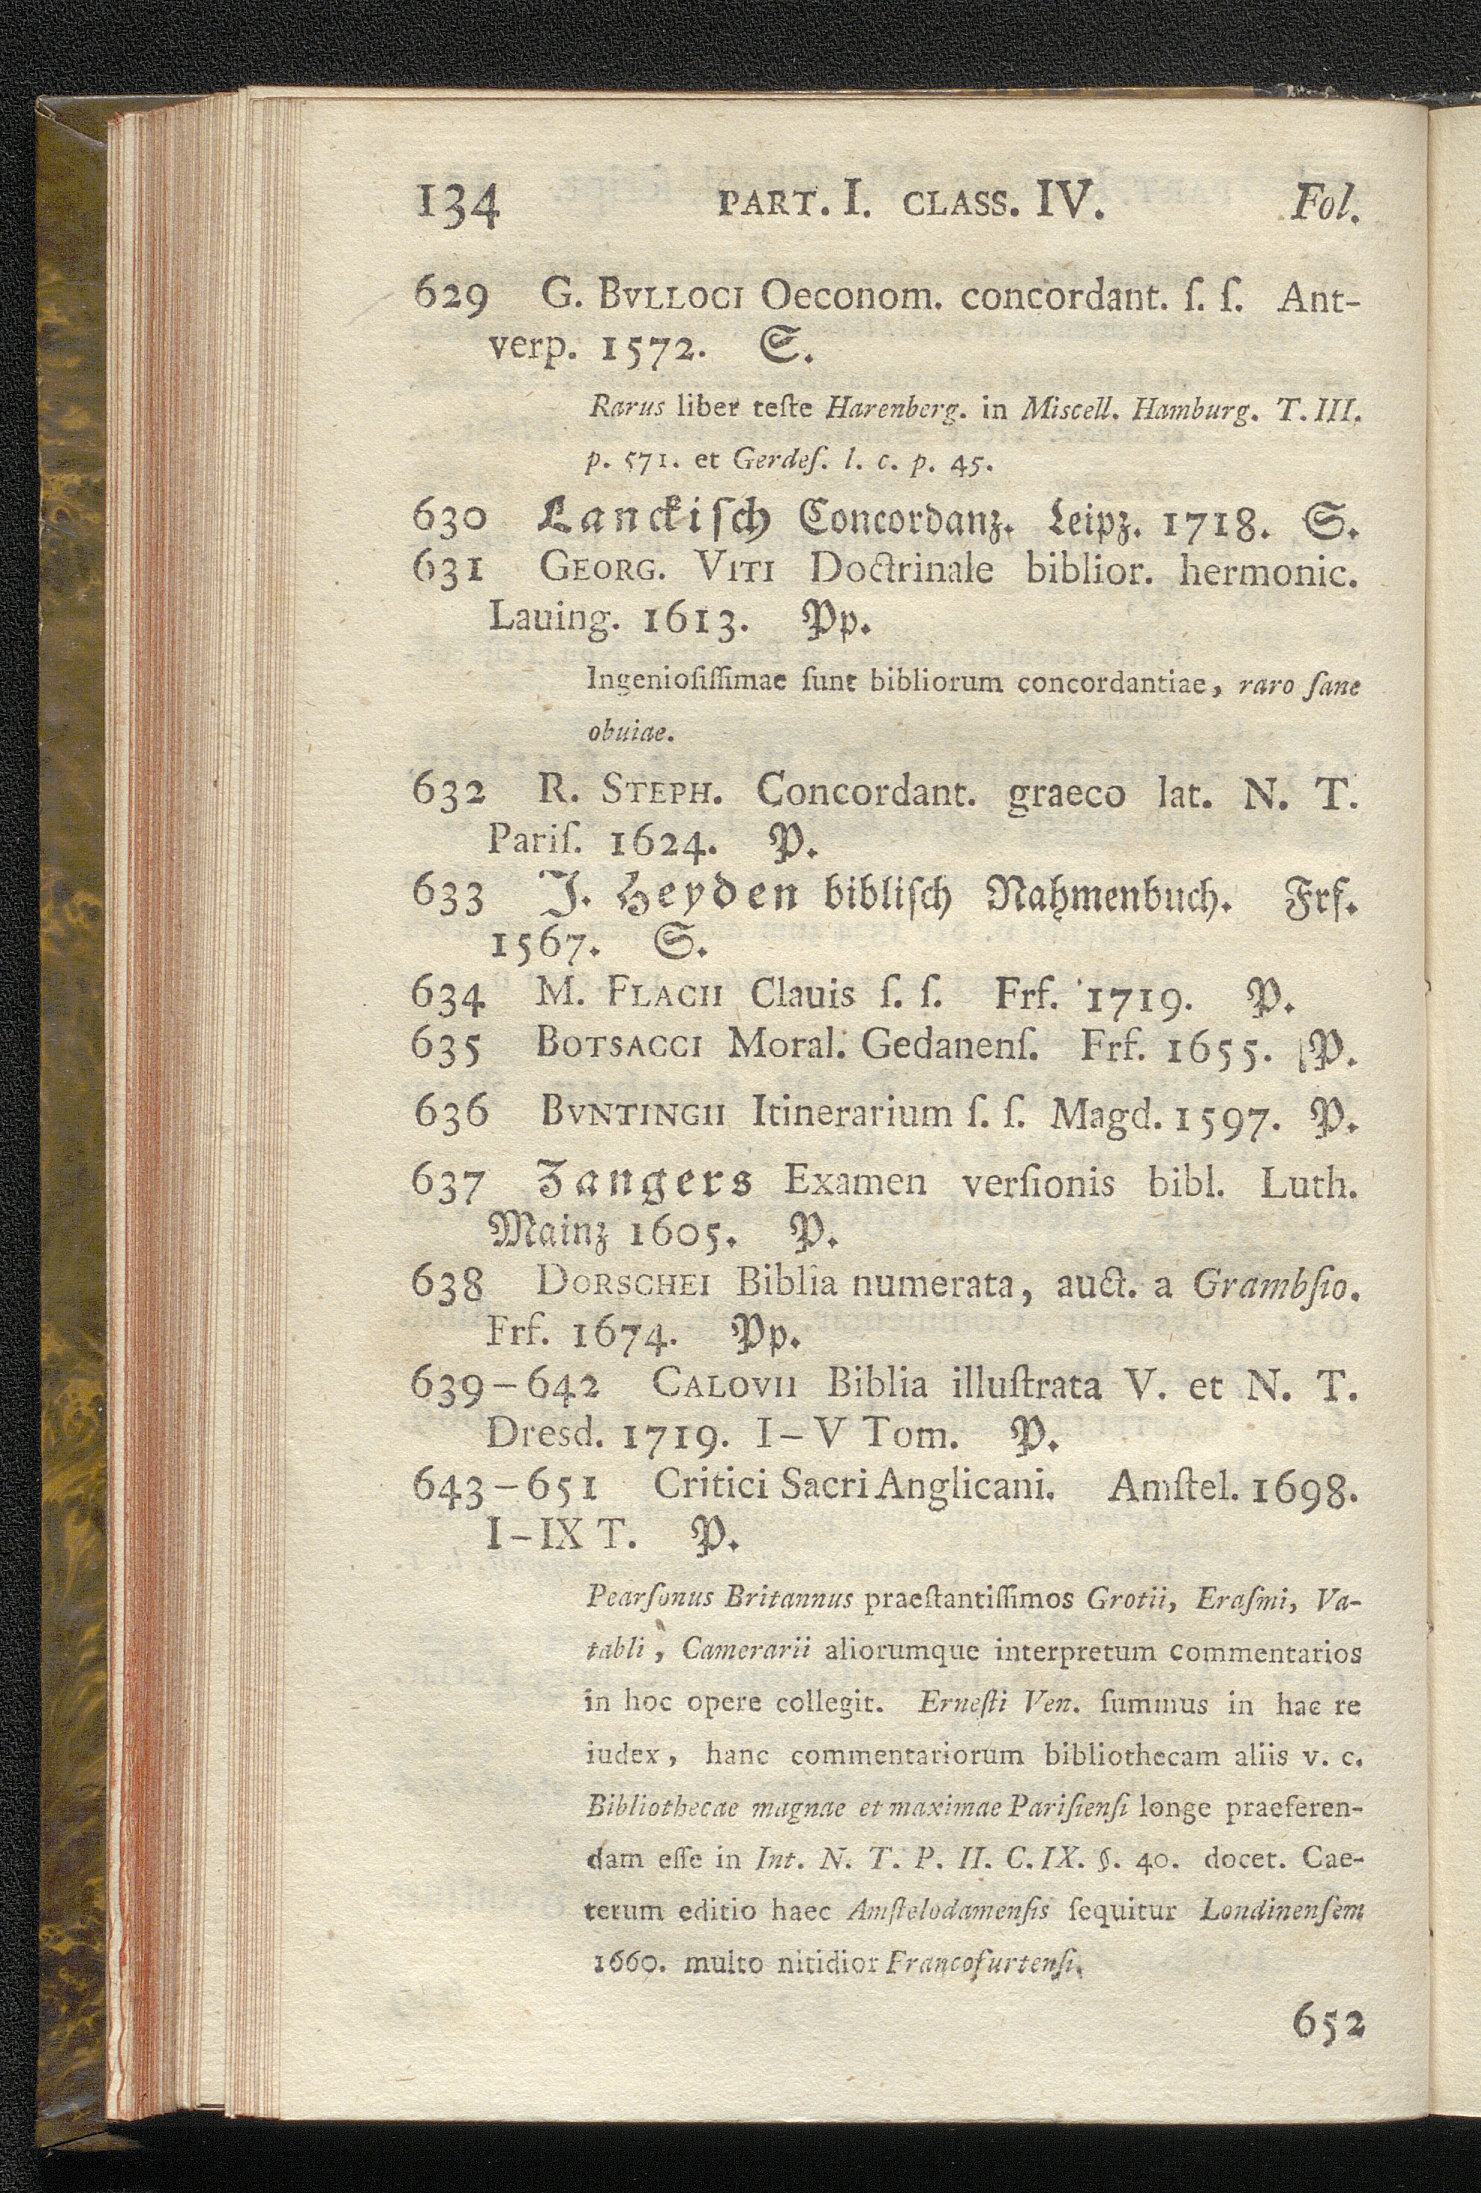 134 PART. I. CLASS. IV. Fol.
629 G. BVLLOCI Oeconom. concordant. ſ. ſ. Ant-
verp. 1572. S.
Rarus liber teſte Harenberg. in Miscell. Hamburg. T. III.
p. 571. et Gerdeſ. l. c. p. 45.
630 Lanckiſch Concordanz. Leipz. 1718. S.
631 GEORG. VITI Doctrinale biblior. hermonic.
Lauing. 1613. Pp.
Ingenioſiſſimae ſunt bibliorum concordantiae, raro ſane
obuiae.
632 R. STEPH. Concordant. graeco lat. N. T.
Pariſ. 1624. P.
633 J. Heyden bibliſch Nahmenbuch. Frf.
1567. S.
634 M. FLACII Clauis ſ. ſ. Frf. 1719. P.
635 BOTSACCI Moral. Gedanenſ. Frf. 1655. P.
636 BVNTINGII Itinerarium ſ. ſ. Magd. 1597. P.
637 Zangers Examen verſionis bibl. Luth.
Mainz 1605. P.
638 DORSCHEI Biblia numerata, auct. a Grambſio.
Frf. 1674. Pp.
639-642 CALOVII Biblia illuſtrata V. et N. T.
Dresd. 1719. I-V Tom. P.
643-651 Critici Sacri Anglicani. Amſtel. 1698.
I-IX T. P.
Pearſonus Britannus praeſtantiſſimos Grotii, Eraſmi, Va-
tabli, Camerarii aliorumque interpretum commentarios
in hoc opere collegit. Erneſti Ven. ſummus in hac re
iudex, hanc commentariorum bibliothecam aliis v. c.
Bibliothecae magnae et maximae Pariſienſi longe praeferen-
dam eſſe in Int. N. T. P. II. C. IX. §. 40. docet. Cae-
terum editio haec Amſtelodamenſis ſequitur Londinenſem
1660. multo nitidior Francofurtenſi.
652